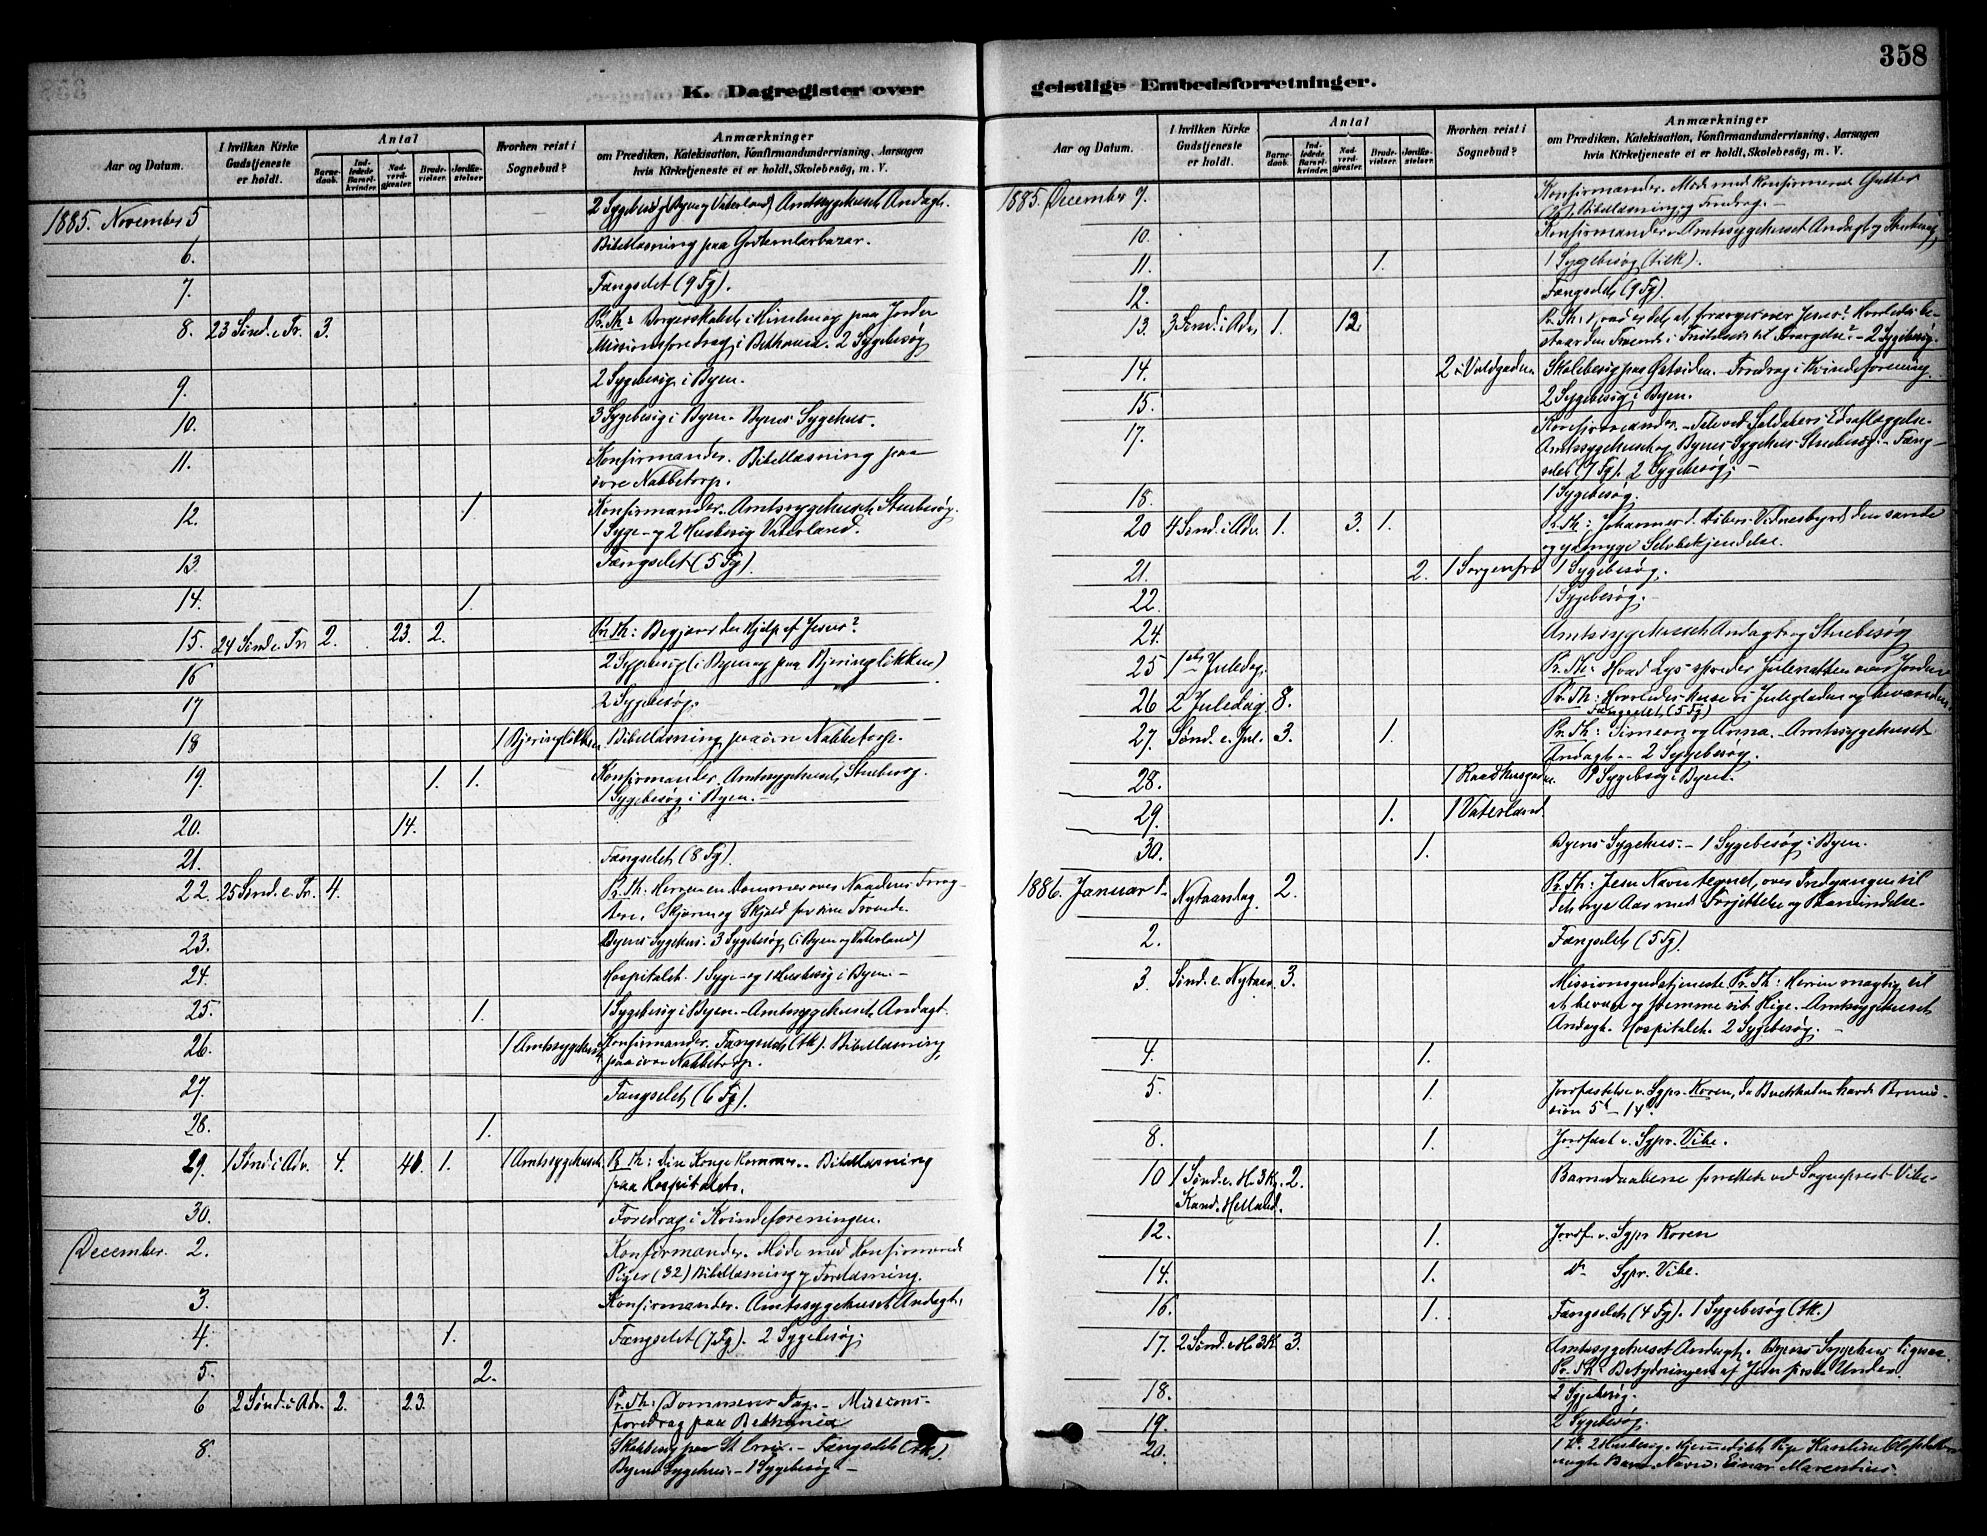 358
K. Dagregister over
Aar og Datum.
I hvilken Kirke Gudstjeneste er holdt.
Antal
Barne-daab.
Ind-ledede Barsel-kvinder.
Nad-verd-gjester.
Brude-vielser.
Jordfæ-stelser.
Hvorhen reist i Sognebud?
Anmærkninger
om Prædiken, Katekisation, Konfirmandundervisning, Aarsagen
hvis Kirketjeneste ei er holdt, Skolebesøg, m. V.
1885. November 5 2 Sygebesøg (Byen og Vaterland) Amtssygehuset Andagt.
6. Bibellæsning paa Godtemplarbazar.
7. Fængselet (9 Fg).
8. 23 Sønd. e. Tr. 3. Pr. Th: Borgerskabet i Himlen og paa Jorden
Missionsforedrag i Bethania. 2 Sygebesøg
9. 2 Sygebesøg i Byen.
10. 3 Sygebesøg i Byen. Byens Sygehus.
11. Konfirmander. Bibellæsning paa
øvre Nabbetorp.
12. 1. Konfirmander. Amtssygehuset Stuebesøg.
1 Syge- og 2 Husbesøg Vaterland.
13. Fængselet (5 Fg).
14. 1.
15. 24 Sønd. e. Tr 2. 23. 2. Pr. Th: Begjærer du Hjelp af Jesus?
16 2 Sygebesøg (i Byen og paa Bjeringløkken)
17 2 Sygebesøg.
18 1 Bjeringløkken Bibellæsning paa øvre Nabbetorp.
19. 1. 1. Konfirmander. Amtssygehuset Stuebesøg.
1 Sygebesøg i Byen.
20. 14.
21. Fængselet (8 Fg).
22. 25 Sønd. e. Tr. 4. Pr. Th: Herren en Dommer over Naadens Forag-
tere, Skjærm og Skjold for sine Troende.
23. Byens Sygehus. 3 Sygebesøg (i Byen og Vaterland)
24. Hospitalet. 1 Syge- og 1 Husbesøg i Byen.
25. 1. 1 Sygebesøg i Byen. Amtssygehuset Andagt.
26. 1 Amtssygehuset Konfirmander. Fængselet (tk). Bibellæsning
paa øvre Nabbetorp.
27. Fængselet (6 Fg).
28. 1.
29. 1 Sønd i Adv. 4. 41. 1. 1 Amtssygehuset Pr. Th: Din Konge kommer. Bibellæsning
paa Hospitalet.
30. Foredrag i Kvindeforeningen.
December. 2. Konfirmander. Møde med Konfirmerede
Piger (32) Bibellæsning og Forelæsning.
3. Konfirmander. Amtssygehuset Andagt.
4. 1. Fængselet (7 Fg). 2 Sygebesøg.
5. 2.
6 2 Sønd. i Adv. 2. 23. Pr. Th: Dommens Dag. Missions-
foredrag paa Bethania
8. Skolebesøg paa St Croix. Fængselet (tk).
Byens Sygehus. 1 Sygebesøg
geistlige Embedsforretninger.
Aar og Datum.
I hvilken Kirke Gudstjeneste er holdt.
Antal
Barne-daab.
Ind-ledede Barsel-kvinder.
Nad-verd-gjester.
Brude-vielser.
Jordfæ-stelser.
Hvorhen reist i Sognebud?
Anmærkninger
om Prædiken, Katekisation, Konfirmandundervisning, Aarsagen
hvis Kirketjeneste ei er holdt, Skolebesøg, m. V.
1885. December 9. Konfirmander. Møde med konfirmerede Gutter
Bibellæsning og Foredrag.
10. Konfirmander. Amtssygehuset Andagt og Stuebesøg
11. 1. 1 Sygebesøg (tilk).
12. Fængselet (9 Fg).
13. 3 Sønd. i Adv. 1. 12. Pr. Th: Hvad er det, at forarges over Jesus? Hvorledes be-
staar den Troende i Fristelsen til Forargelse? 2 Sygebesøg.
14. 2 i Voldgaden Skolebesøg paa Østsiden. Foredrag i Kvindeforening.
15. 2 Sygebesøg i Byen.
17. Konfirmander. Tale ved Soldaters Edsaflæggelse.
Amtssygehuset og Byens Sygehus Stuebesøg. Fæng-
selet (7 Fg). 2 Sygebesøg.
18. 1 Sygebesøg.
20 4 Sønd. i Adv. 1. 3. 1. Pr. Th: Johannes d. Døbers Vidnesbyrd den sande
og ydmyge Selvbekjendelse.
21. 2. 1 Sorgenfri 1 Sygebesøg.
22. 1 Sygebesøg.
24. Amtssygehuset Andagt og Stuebesøg
25 1ste Juledag. Pr. Th: Hvad Lys spreder Julenatten over Jorden
26 2 Juledag 8. Pr. Th: Hvorledes kunne vi Juleglæden og bevare den.
Fængselet (5 Fg)
27. Sønd. e. Jul. 3. 1. Pr. Th: Simeon og Anna. Amtssygehuset
Andagt. 2 Sygebesøg.
28. 1 Raadhusgaden. Sygebesøg i Byen.
29. 1. 1 Vaterland.
30. 1. Byens Sygehus. 1 Sygebesøg i Byen.
1886. Januar 1. Nytaarsdag 2. Pr. Th: Jesu Navn tegnet over Indgangen til
det nye Aar med Forjættelse og Paamindelse.
2. Fængselet (5 Fg).
3. Sønd. e. Nytaar. 3. Missionsgudstjeneste Pr. Th: Herren mægtig til
at bevare og fremme sit Rige. Amtssygehuset
Andagt. Hospitalet. 2 Sygebesøg.
4. 1.
5. 1. Jordfæstelse v. Sgpr. Koren, da Buchholm havde Permis-
sion 5te – 14de
8. 1. Jordfæst v. Sgpr. Vibe.
10 1 Sønd. e. H. 3 K. 2. Barnedaabene forrettede ved Sogneprest Vibe.
Kand. Helland.
12. 1. Jordf. v. Sgpr Koren
14. 1. do Sgpr. Vibe.
16. 1. Fængselet (4 Fg). 1 Sygebesøg (tk.)
17. 2 Sønd. e H. 3 K 3. Amtssygehuset Andagt. Byens Sygehus
Pr. Th: Betydningen af Jesu første Under.
18. 2 Sygebesøg.
19. 2 Sygebesøg.
20. 2 Husbesøg. Hjemmedøbt Pige Karoline
Barn. Navn: Einar Marentius.